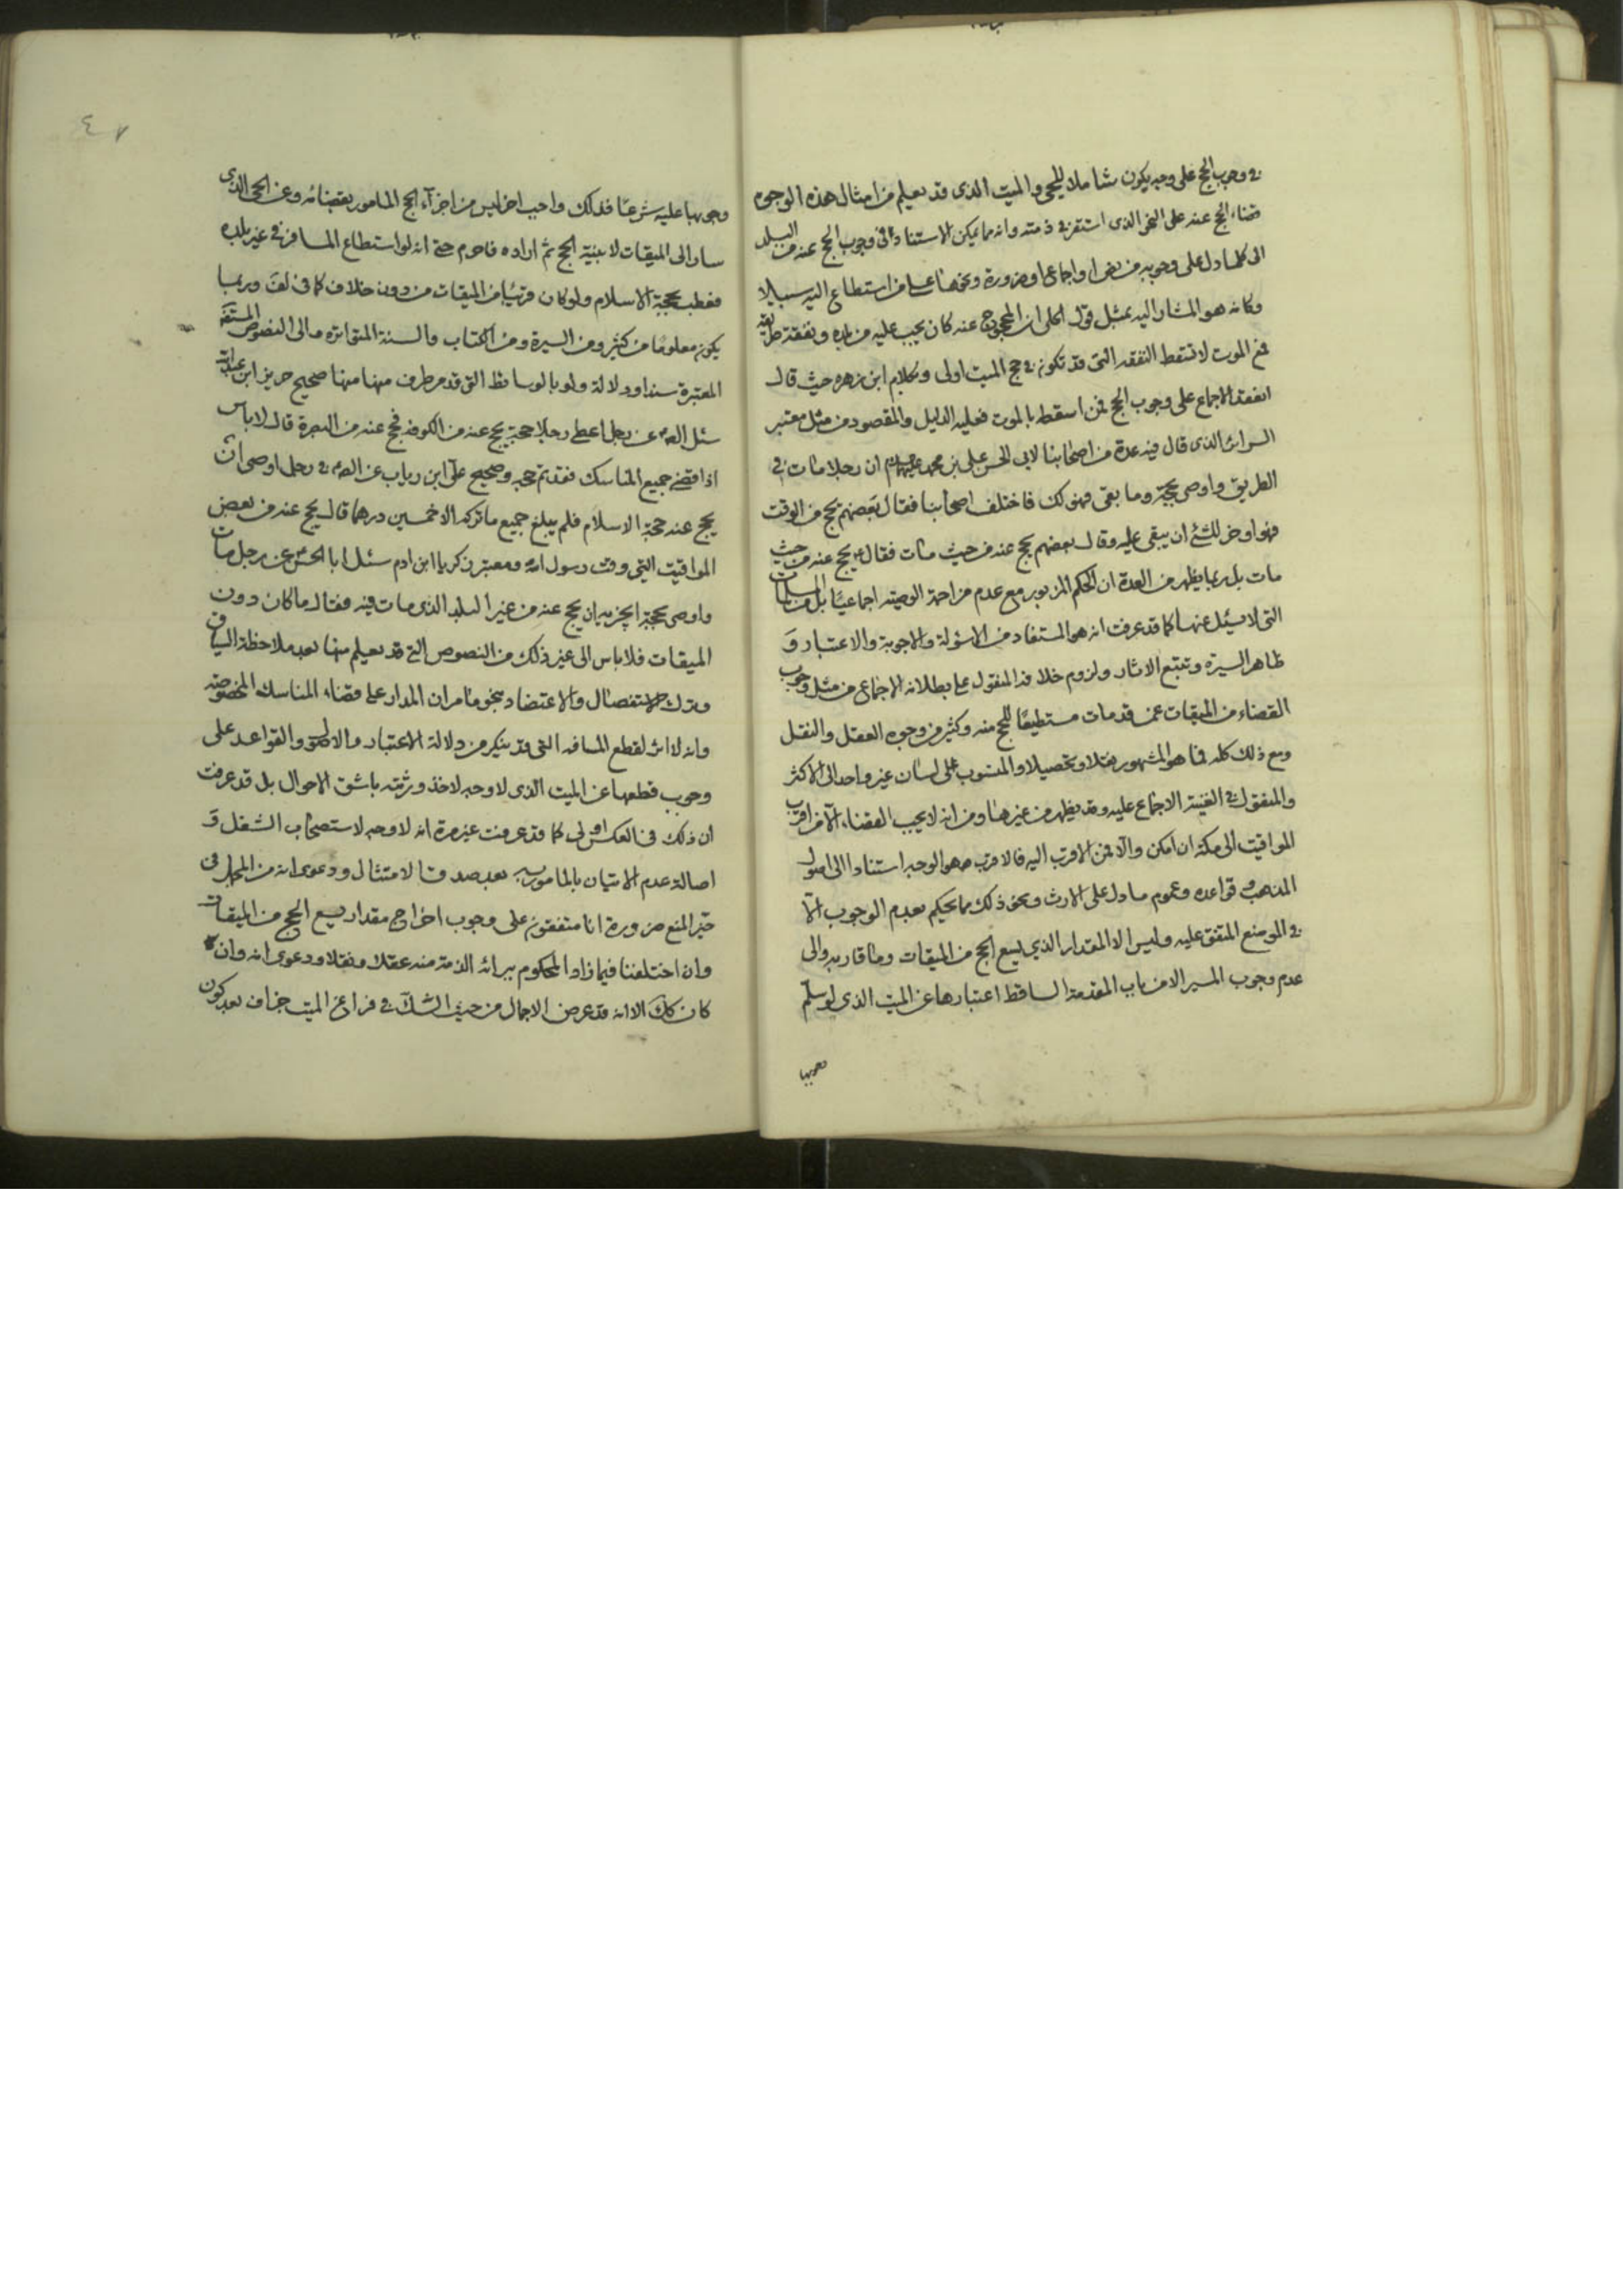 في وجوب الحج على وجه يكون شاملا للحي والميت الذي قد يعلم من امثال هذه الوجوه
قضاء الحج عنه على النحو الذي استقر في ذمته وانه مما يمكن الاستناد في وجوب الحج عنه من البلد
الى كلما دل على وجوبه من نص او اجماع او ضرورة ونحوها على من استطاع اليه سبيلا
وكانه هو المشار اليه بمثل قول الحلي ان المحجوج عنه كان يجب عليه من بلده ونفقة طريقه
فمع الموت لا تسقط النفقه التي قد تكون في حج الميت اولى وبكلام ابن زهره حيث قال
انعقد الاجماع على وجوب الحج فمن اسقط بالموت فعليه الدليل والمقصود من مثل معتبر
السرائر الذي قال فيه عدة من اصحابنا لابي الحسن علي بن محمد عليهما السلام ان رجلا مات في
الطريق واوصى بحجة وما بقي فهو لك فاختلف اصحابنا فقال بعضهم يحج من الوقت
فهو اوفر للشئ ان يبقى عليه وقال بعضهم يحج عنه من حيث مات فقال ع يحج عنه من حيث
مات بل ربما يظهر من العدة ان الحكم المزبور مع عدم مزاحمة الوصيته اجماعيا بل من المسلمات
التي لا يسئل عنها كما قد عرفت انه هو المستفاد من الاسئولة والاجوبة والاعتبار و
ظاهر السيرة وتتبع الاثار ولزوم خلافه المنقول على بطلانه الاجماع من مثل وجوب
القضاء من الميقات عمن قد مات مستطيعا للحج منه وكثير من وجوه العقل والنقل
ومع ذلك كله فما هو المشهور نقلا وتحصيلا والمنسوب على لسان غير واحد الى الاكثر
والمنقول في الغنية الاجماع عليه وقد يظهر من غيرها ومن انه لا يجب القضاء الا من اقرب
المواقيت الى مكة ان امكن والا فمن الاقرب اليه فالاقرب هو الوجه استنادا الى اصول
المذهب وقواعده وعموم ما دل على الارث ونحو ذلك مما يحكم بعدم الوجوب الا
في الموضع المتفق عليه وليس الا المقدار الذي يسع الحج من الميقات وما قاربه والى
عدم وجوب المسير الا من باب المقدمة الساقط اعتبارها عن الميت الذي لو سلم
وجوبها
٤٧
وجوبها عليه شرعا فذلك واجب اخر ليس من اجزآء الحج المامور بقضائه وعن الحي الذي
سار الى الميقات لا بنية الحج ثم اراده فاحرم حتى انه لو استطاع المسافر في غير بلده
فعطب بحجة الاسلام ولو كان قريبا من الميقات من دون خلاف كما في لف وربما
يكون معلوما من كثير ومن السيرة ومن الكتاب والسنة المتواتره والى النصوص المستفضة
المعتبرة سندا ودلالة ولو بالوسائط التي قد مر طرف منها منها صحيح حريز ابن عبد الله
سئل الص ع عن رجل اعطى رجلا حجة يحج عنه من الكوفه فحج عنه من البصرة قال لا باس
اذا قضى جميع المناسك فقد تم حجه وصحيح علي ابن رياب عن الص ع في رجل اوصى ان
يحج عنه حجة الاسلام فلم يبلغ جميع ما تركه الا خمسين درهما قال يحج عنه من بعض
المواقيت التي وقت رسول الله ومعتبر زكريا ابن ادم سئل ابا الحسن ع عن رجل مات
واوصى بحجة ايجزيه ان يحج عنه من غير البلد الذي مات فيه فقال ما كان دون
الميقات فلا باس الى غير ذلك من النصوص التي قد يعلم منها بعد ملاحظة السياق
وترك الاستفصال والاعتضاد بنحو ما مر ان المدار على قضاء المناسك المخصوصه
وانه لا اثر لقطع المسافه التي قد ينكر من دلالة الاعتبار والاصول والقواعد على
وجوب قطعها عن الميت الذي لا وجه لاخذ ورثته باشق الاحوال بل قد عرفت
ان ذلك في العكس اولى كما قد عرفت غير مرة انه لا وجه لاستصحاب الشغل و
اصالة عدم الاتيان بالمامور به بعد صدق الامتثال ودعوى انه من المجمل في
حيز المنع ضرورة انا متفقون على وجوب اخراج مقدار يسع الحج من الميقات
وان اختلفنا فيما زاد المحكوم ببرائه الذمة منه عقلا ونقلا ودعوى انه وان
كان كك الا انه قد عرض الاجمال من حيث الشك في فراغ الميت جزاف بعد كون